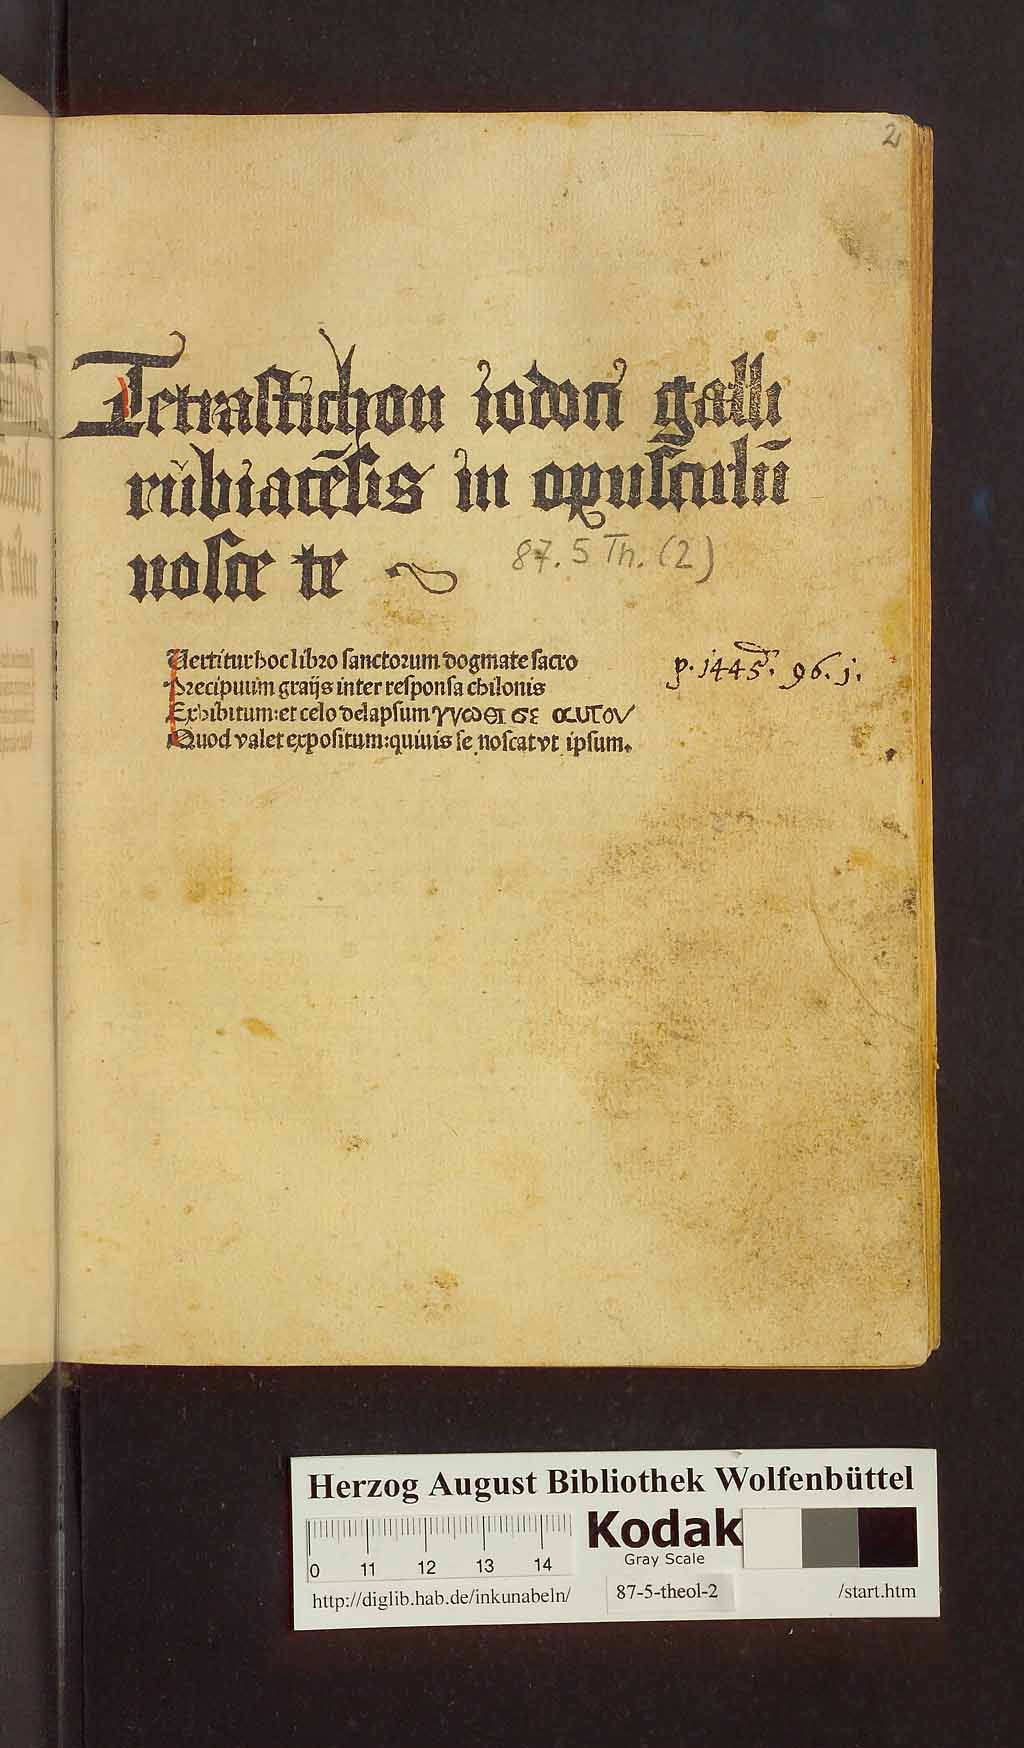 2
Tetrastichon iodoci galli
rubiacēsis in opusculū
nosce te
87. 5 Th. (2)
Uertitur hoc libro sanctorum dogmate sacro
p. 1445. 96. j.
Precipuum graijs inter responsa chilonis
Exhibitum: et celo delapsum γνωθι σε αυτον
Quod valet expositum: quiuis se noscat vt ipsum.
Herzog August Bibliothek Wolfenbüttel
Kodak
Gray Scale
0 11 12 13 14
http://diglib.hab.de/inkunabeln/ 87-5-theol-2 /start.htm